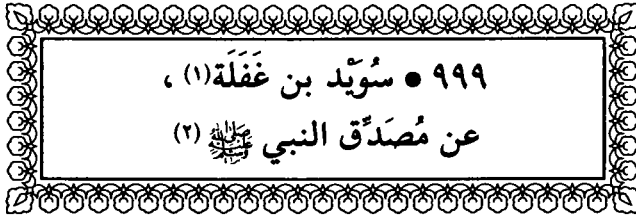 ٩٩٩ • سُوَيْد بن غَفَلَة(١) ،
عن مُصَدِّق النبي ﷺ (٢)